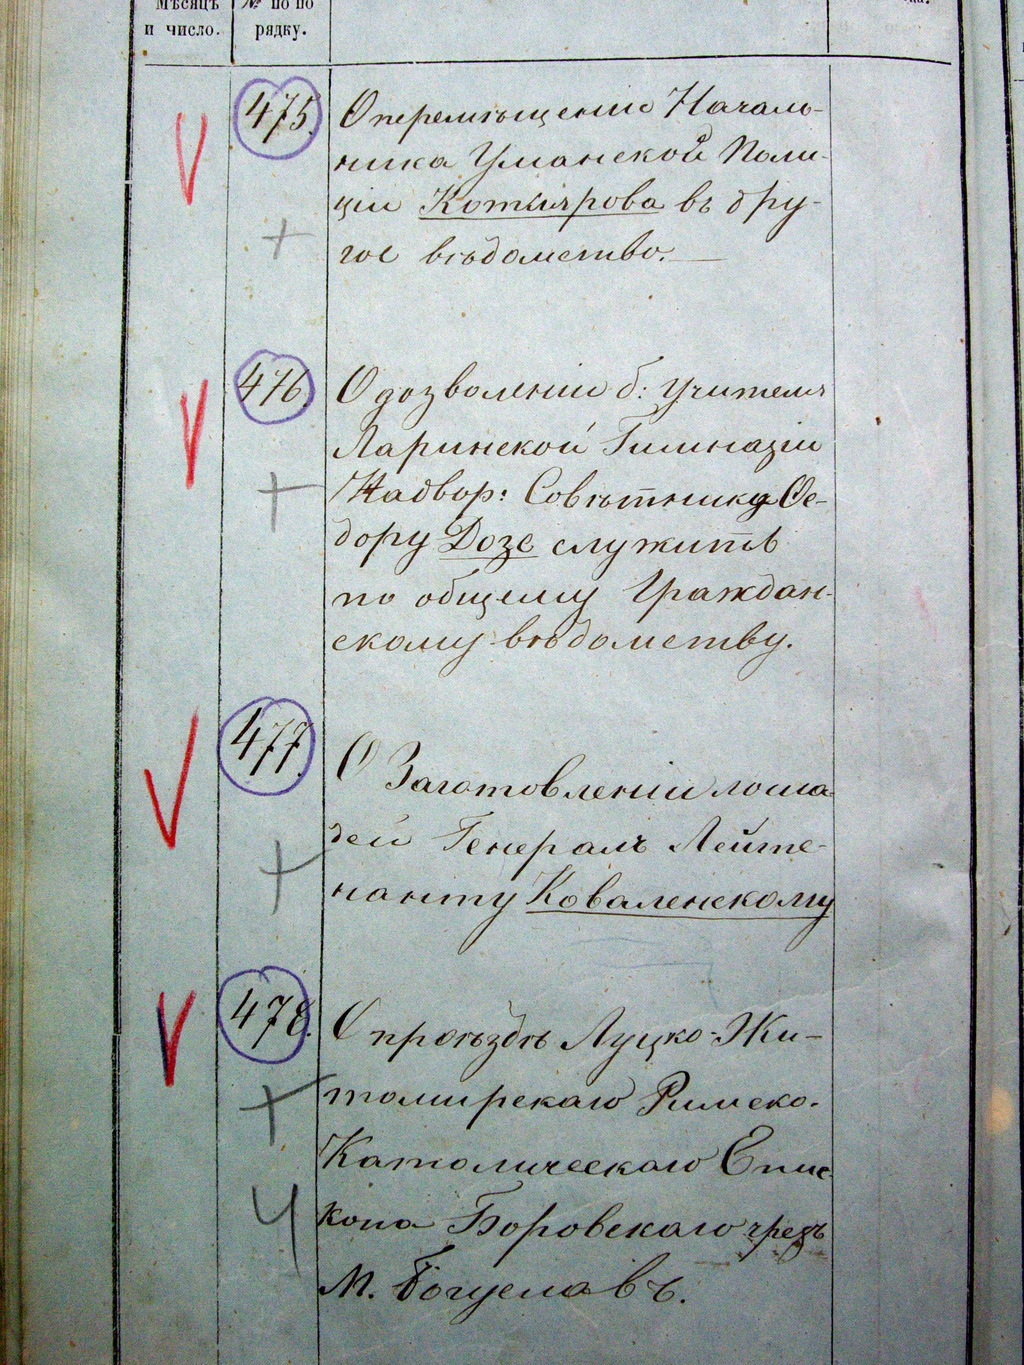 Мѣсяцъ
и число.
№ по по
рядку.
475.
О перемѣщеніи Началь-
ника Уманской Поли-
ціи Котлярова въ дру-
гое вѣдомство.
476.
О дозволеніи б: учителю
Ларинской Гимназіи
Надвор: Совѣтнику Ѳе-
дору Дозе служить
по общему Граждан-
скому вѣдомству.
477.
О Заготовленіи лоша-
дей Генералъ Лейте-
нанту Коваленскому
478.
О проѣздѣ Луцко-Жи-
томирскаго Римско-
Католическаго Епис-
копа Боровскаго чрезъ
м. Богуславъ.